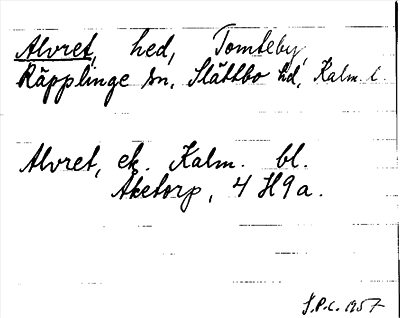 Alvret, hed, Tomteby,
Räpplinge sn, Slättbo hd, Kalm. l.
Alvret, ek. Kalm. bl.
Åketorp, 4 H9a.
J.P.L. 1957